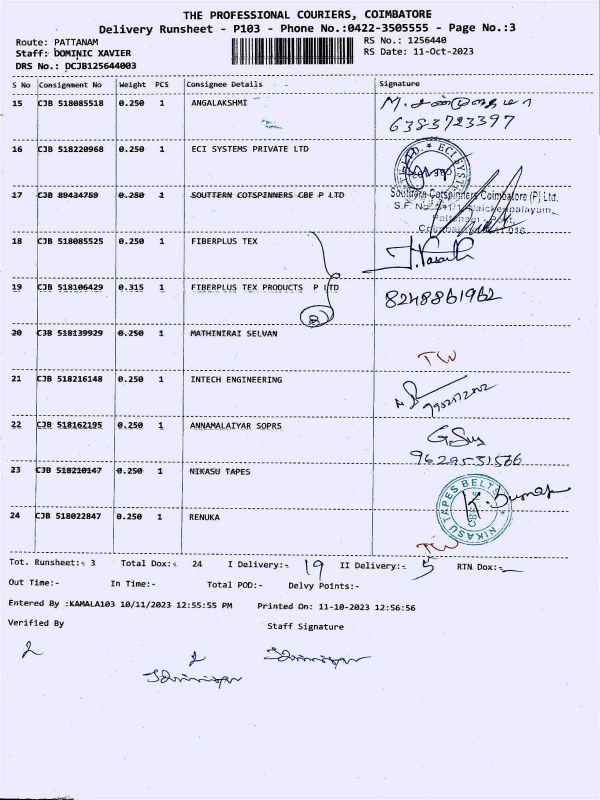 THE PROFESSIONAL COURIERS, COIMBATORE
Delivery Runsheet - P103 - Phone No.:0422-3505555 - Page No.:3
Route: PATTANAM RS No.: 1256440
Staff: DOMINIC XAVIER RS Date: 11-Oct-2023
DRS No.: DCJB125644003
S No Consignment No Weight PCS Consignee Details Signature
15 CJB 518085518 0.250 1 ANGALAKSHMI
6383723397
16 CJB 518220968 0.250 1 ECI SYSTEMS PRIVATE LTD
17 CJB 89434759 0.250 1 SOUTTERN COTSPINNERS CBE P LTD Southern Cotspinners Coimbatore (P) Ltd.
18 CJB 518085525 0.250 1 FIBERPLUS TEX
19 CJB 518106429 0.315 1 FIBERPLUS TEX PRODUCTS P LTD 8248861962
2
20 CJB 518139929 0.250 1 MATHINIRAI SELVAN
TW
21 CJB 518216148 0.250 1 INTECH ENGINEERING
22 CJB 518162195 0.250 1 ANNAMALAIYAR SOPRS
9629531566
23 CJB 518210147 0.250 1 NIKASU TAPES
NIKASU TAPES BELTS
24 CJB 518022847 0.250 1 RENUKA
TW
Tot. Runsheet:- 3 Total Dox:- 24 I Delivery:- 19 II Delivery:- 5 RTN Dox:-
Out Time:- In Time:- Total POD:- Delvy Points:-
Entered By :KAMALA103 10/11/2023 12:55:55 PM Printed On: 11-10-2023 12:56:56
Verified By Staff Signature